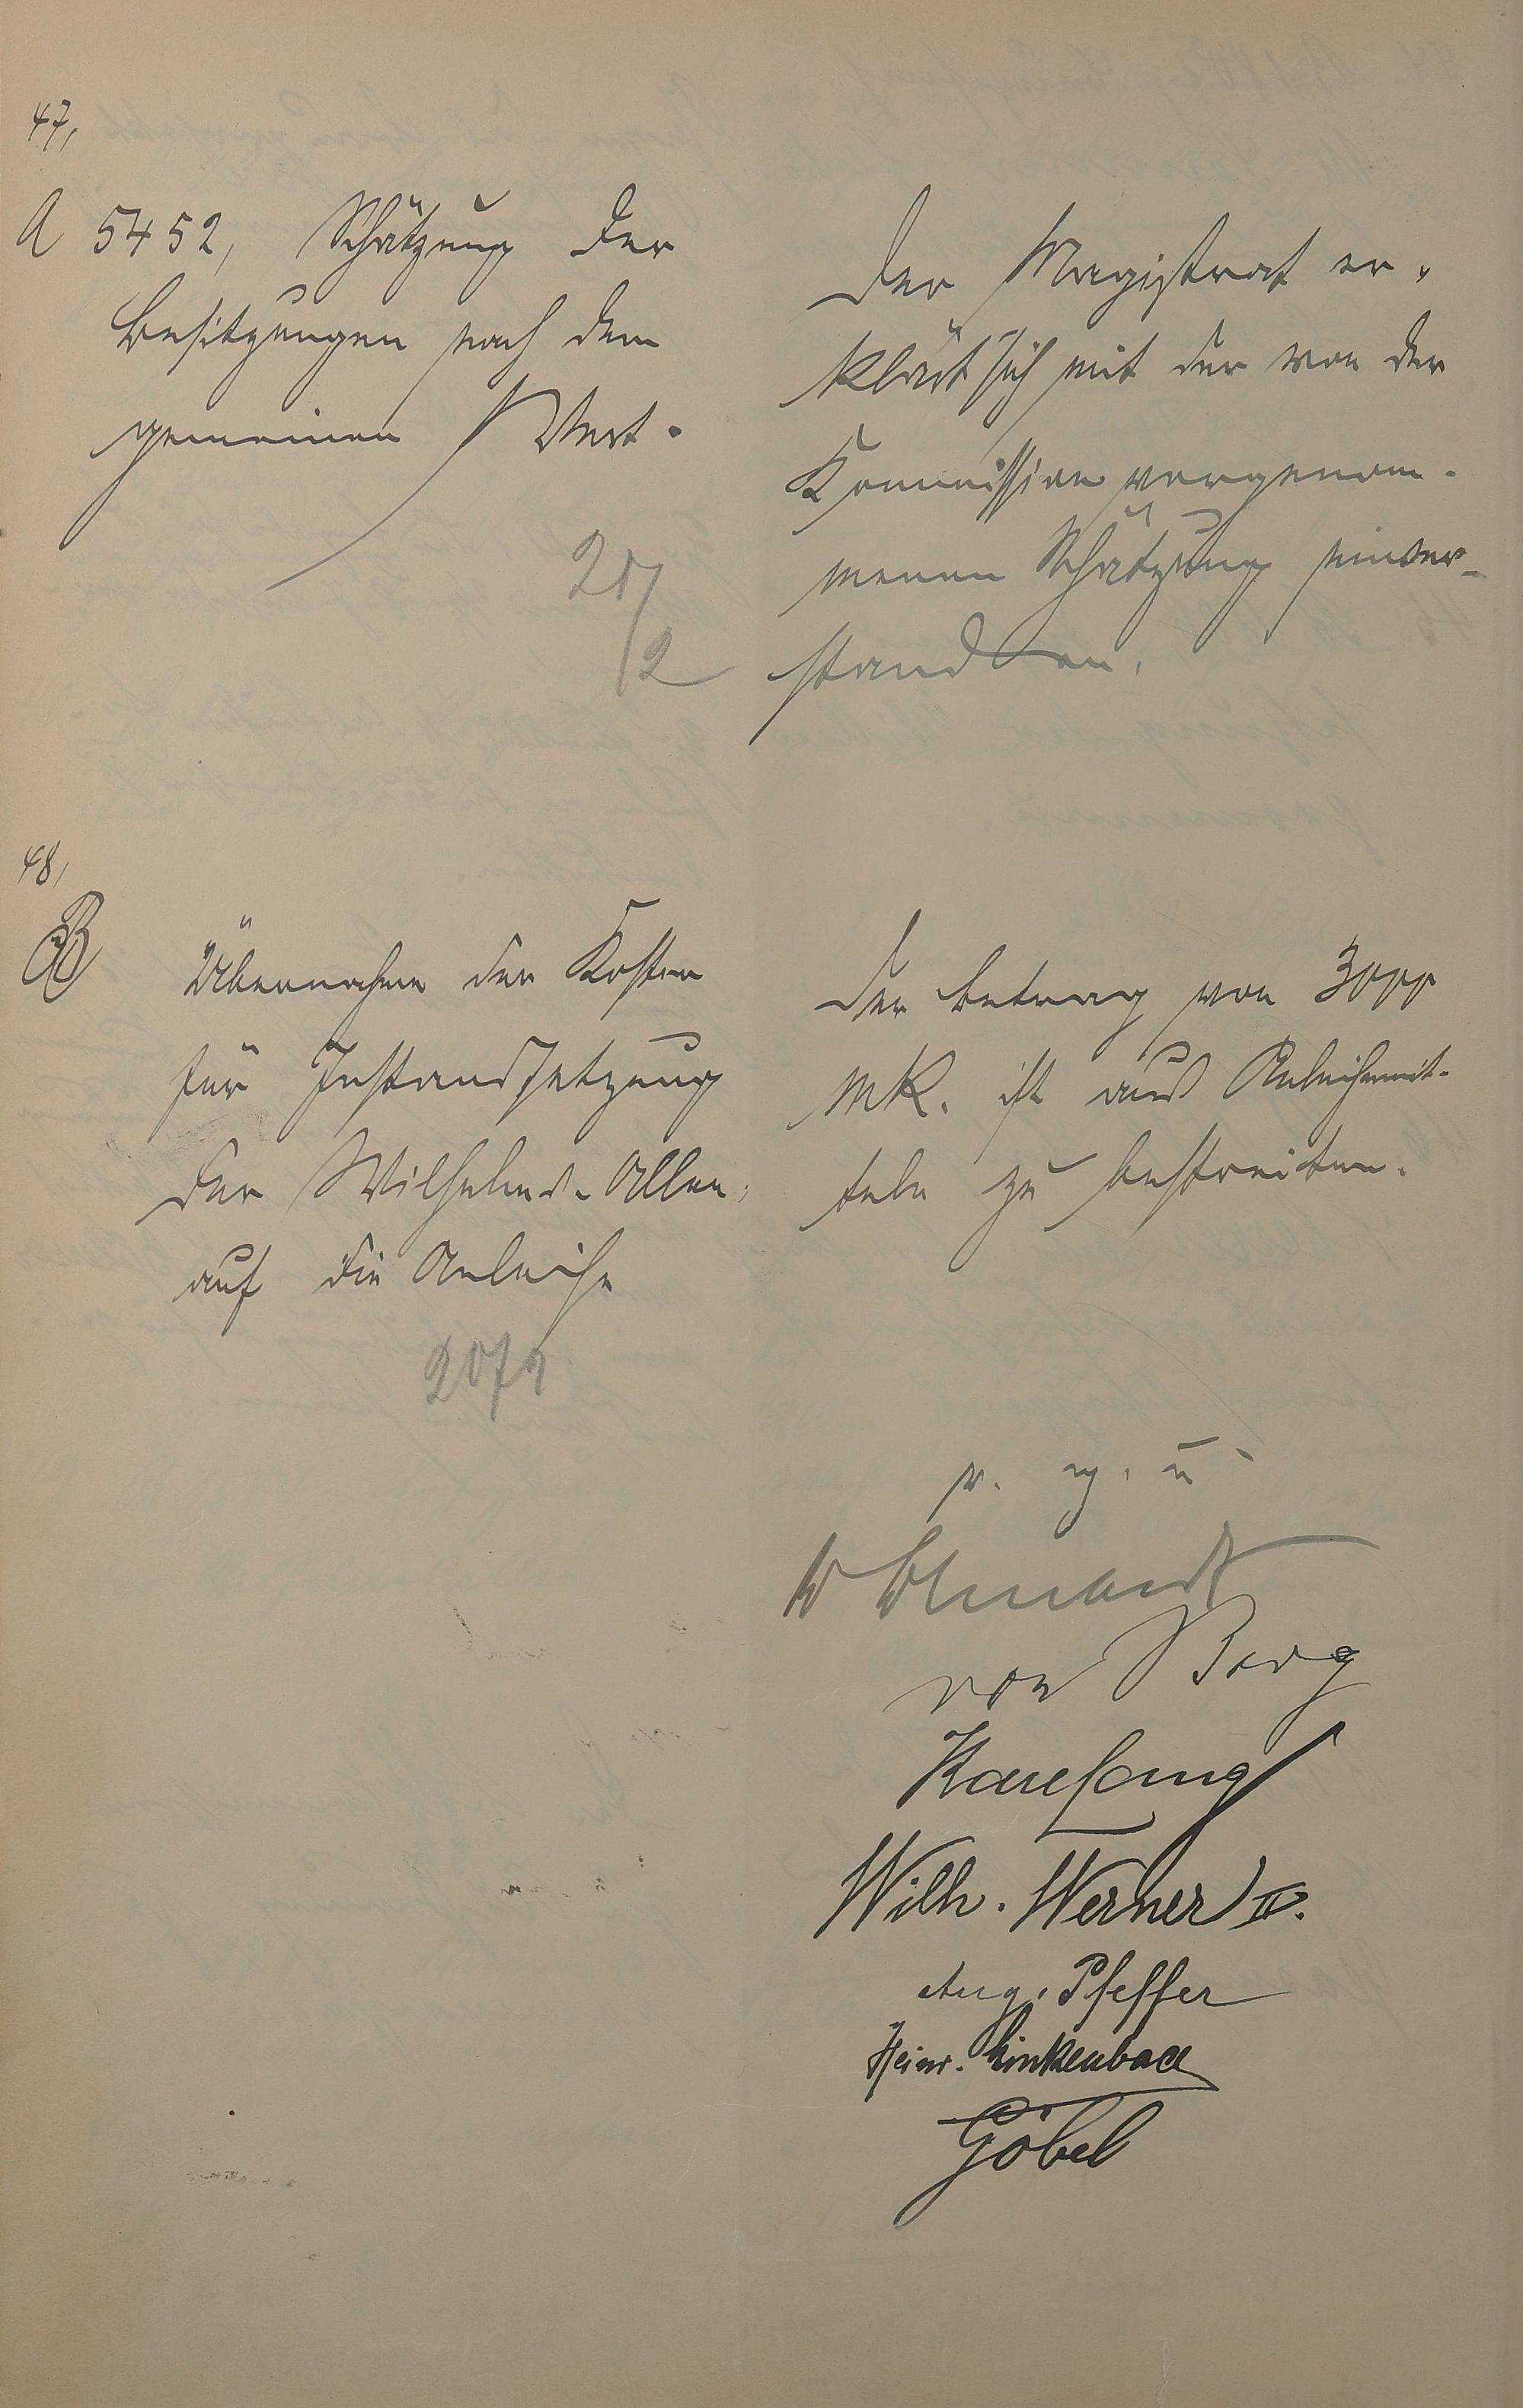 47,
A 5452, Schätzung der
Besitzungen nach dem
gemeinen Wert.
20/2
Der Magistrat er-
klärt sich mit der von der
Kommission vorgenom-
menen Schätzung einver-
standen.
48,
B
Übernahme der Kosten
für Instandsetzung
der Wilhelms-Allee,
auf die Anleihe
20/2
Der Betrag von 3000
Mk. ist aus Anleihemit-
teln zu bestreiten.
v. g. u.
von Berg
Karl Lang
Wilh. Werner II.
Aug. Pfeffer
Heinr. Linkenbach
Göbel